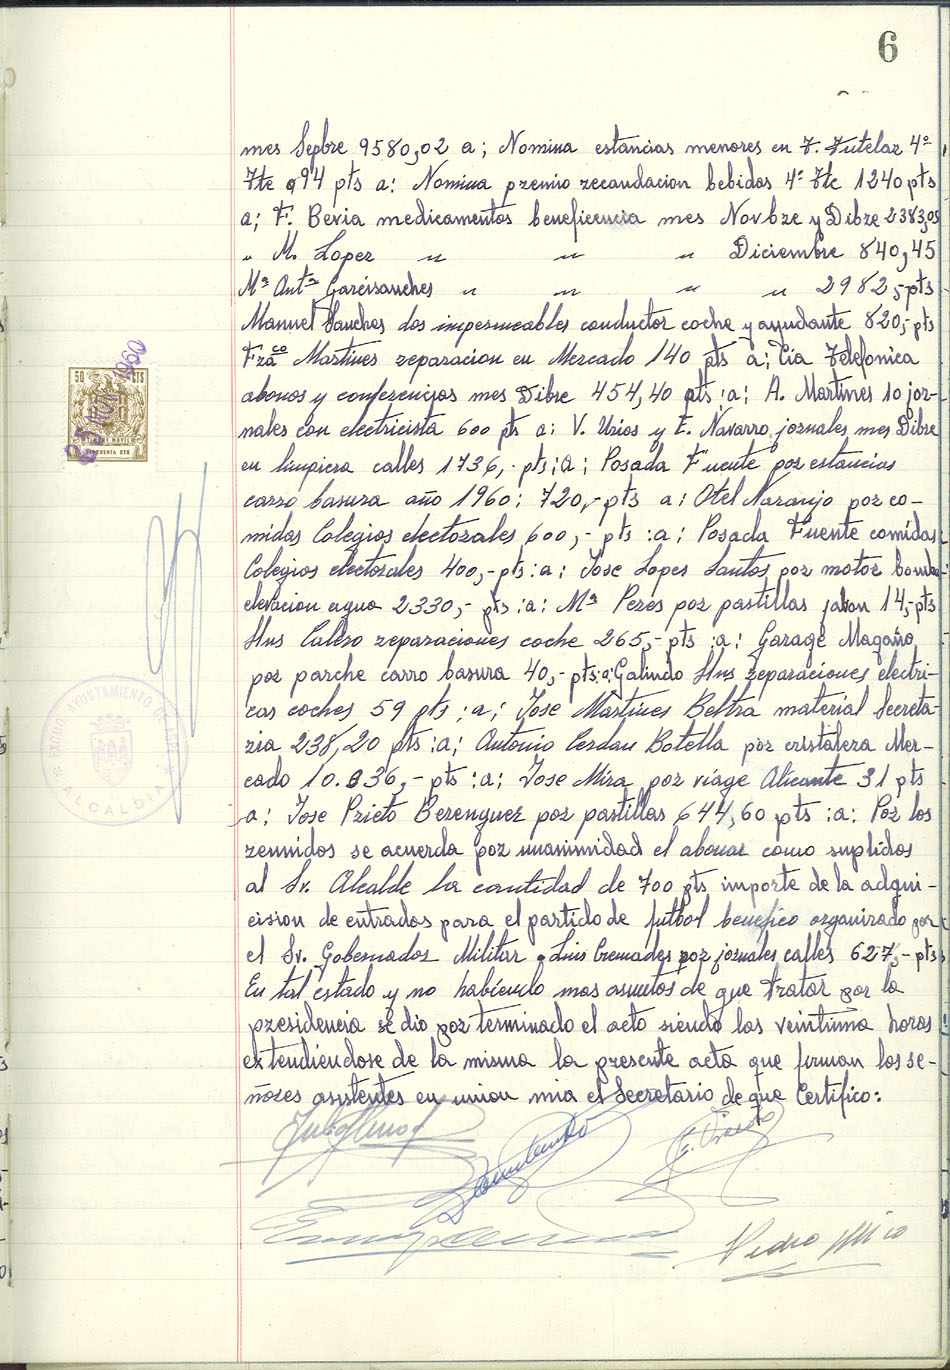 6
mes Sepbre 9580,02 a; Nomina estancias menores en T. Tutelar 4º
Tte 994 pts a: Nomina premio recaudacion bebidas 4º Tte 1240 pts
a; F. Bevia medicamentos beneficencia mes Novbre y Dibre 2383,05
" M. Lopez " " " Diciembre 840,45
Mª Antª Garcisanches " " " " 2982,5 pts
Manuel Sanches dos impermeables conductor coche y ayudante 820,- pts
Frzco Martines reparacion en Mercado 140 pts a; Cia Telefonica
abonos y conferencias mes Dibre 454,40 pts :a; A. Martines 10 jor-
nales con electricista 600 pts a: V. Urios y E. Navarro jornales mes Dibre
en limpieza calles 1736,- pts :a; Posada Fuente por estancias
carro basura año 1960: 720,- pts a: Otel Naranjo por co-
midas Colegios electorales 600,- pts :a; Posada Fuente comidas
Colegios electorales 400,- pts :a: Jose Lopes Santos por motor bomba
elevacion agua 2330,- pts :a: Mª Peres por pastillas jabon 14,- pts
Hns Calero reparaciones coche 265,- pts :a: Garage Magaño
por parche carro basura 40,- pts :a: Galindo Hns reparaciones electri-
cas coches 59 pts :a; Jose Martines Beltra material Secreta-
ria 238,20 pts :a; Antonio Cerdan Botella por cristalera Mer-
cado 10.836,- pts :a; Jose Mira por viage Alicante 31 pts
a; Jose Prieto Berenguer por pastillas 644,60 pts :a: Por los
reunidos se acuerda por unanimidad el abonar como suplidos
al Sr. Alcalde la cantidad de 700 pts importe de la adqui-
cision de entradas para el partido de futbol benefico organizado por
el Sr. Gobernador Militar. Luis Cremades por jornales calles 627,- pts
En tal estado y no habiendo mas asuntos de que tratar por la
presidencia se dio por terminado el acto siendo las veintiuna horas
extendiendose de la misma la presente acta que firman los se-
ñores asistentes en union mia el Secretario de que Certifico:
Pedro Mico
50 CTS
TIMBRE MOVIL
CINCUENTA CTS
1960
EXCMO. AYUNTAMIENTO DE
ALCALDIA